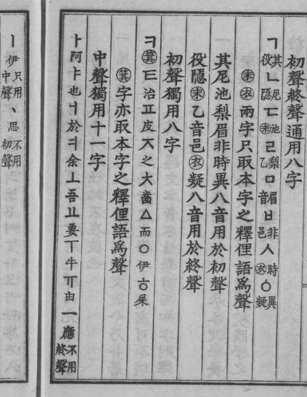 初聲終聲通用八字
ㄱ其役ㄴ尼隱ㄷ池末ㄹ梨乙ㅁ眉音ㅂ非邑ㅅ時衣ㆁ異凝
末衣兩字只取本字之釋俚語爲聲
其尼池梨眉非時異八音用於初聲
役隱末乙音邑衣凝八音用於終聲
初聲獨用八字
ㅋ箕ㅌ治ㅍ皮ㅈ之ㅊ齒ㅿ而ㅇ伊ㅎ屎
箕字亦取本字之釋俚語爲聲
中聲獨用十一字
ㅏ阿ㅑ也ㅓ於ㅕ余ㅗ吾ㅛ要ㅜ牛ㅠ由ㅡ應不用終聲
ㅣ伊只用中聲ㆍ思不用初聲